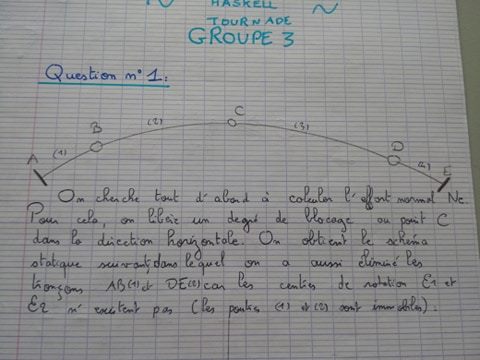 HASKELL
TOURNADE
GROUPE 3
Question n°1:
A (1) B (2) C (3) D (4) E
On cherche tout d'abord à calculer l'effort normal Nc.
Pour cela, on libère un degré de blocage au point C
dans la direction horizontale. On obtient le schéma
statique suivant, dans lequel on a aussi éliminé les
tronçons AB(1) et DE(2) car les centres de rotation E1 et
E2 n'existent pas (les parties (1) et (2) sont immobiles).